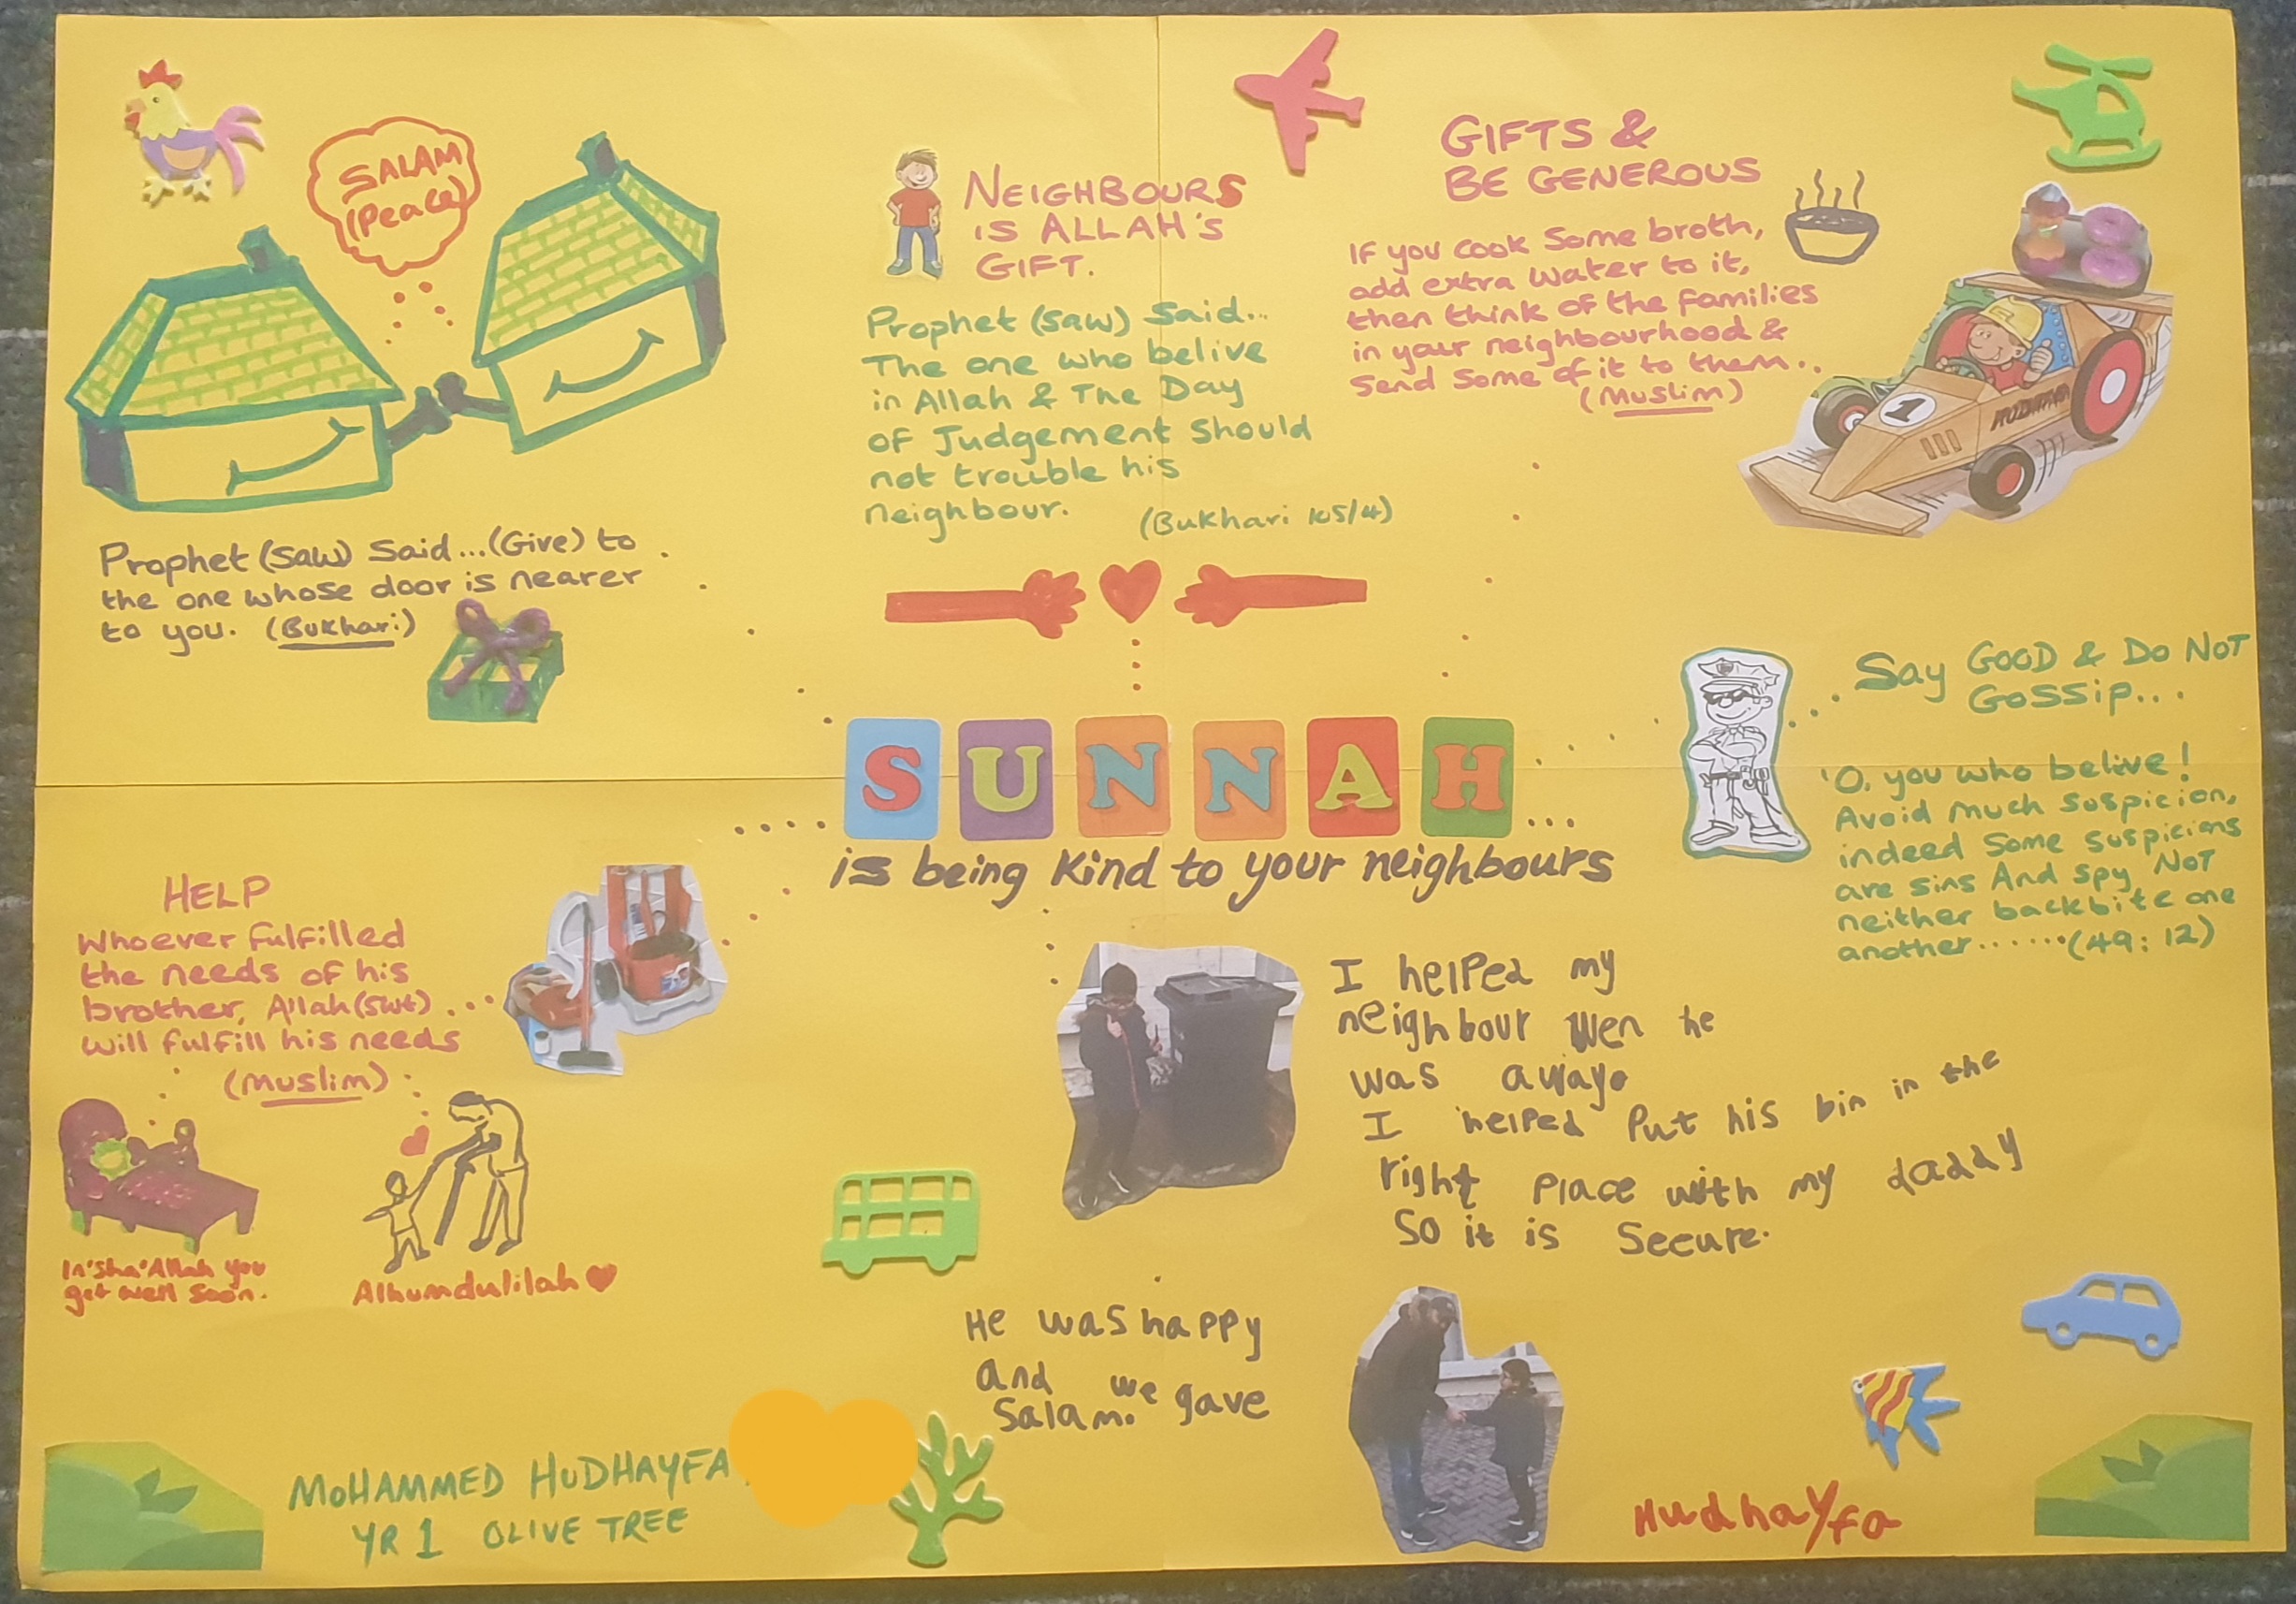 SALAM
(Peace)
Prophet (saw) Said...(Give) to
the one whose door is nearer
to you. (Bukhari)
NEIGHBOURS
IS ALLAH'S
GIFT.
Prophet (saw) Said...
The one who belive
in Allah & The Day
of Judgement Should
not trouble his
neighbour.
(Bukhari 105/4)
GIFTS &
BE GENEROUS
If you cook Some broth,
add extra water to it,
then think of the families
in your neighbourhood &
Send Some of it to them..
(Muslim)
1
SUNNAH
is being kind to your neighbours
Say GOOD & Do NOT
GOSSip...
'O, you who belive!
Avoid much suspicion,
indeed Some suspicions
are sins And spy NOT
neither backbite one
another......(49:12)
HELP
Whoever fulfilled
the needs of his
brother, Allah(swt)...
will fulfill his needs
(Muslim)
In'sha'Allah you
get well Soon.
Alhumdulilah
I helped my
neighbour wen he
was away.
I helped Put his bin in the
right place with my daddy
So it is Secure.
He was happy
and we gave
Salam.
MOHAMMED HUDHAYFA
YR 1 OLIVE TREE
Hudhayfa